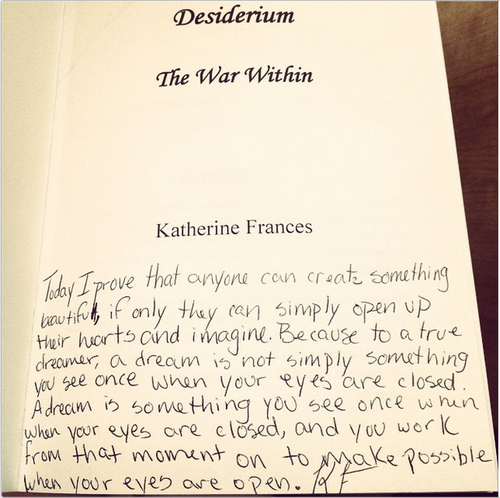 Desiderium
The War Within
Katherine Frances
Today I prove that anyone can create something
beautiful, if only they can simply open up
their hearts and imagine. Because to a true
dreamer, a dream is not simply something
you see once when your eyes are closed.
A dream is something you see once when
when your eyes are closed, and you work
from that moment on to make possible
when your eyes are open. KF